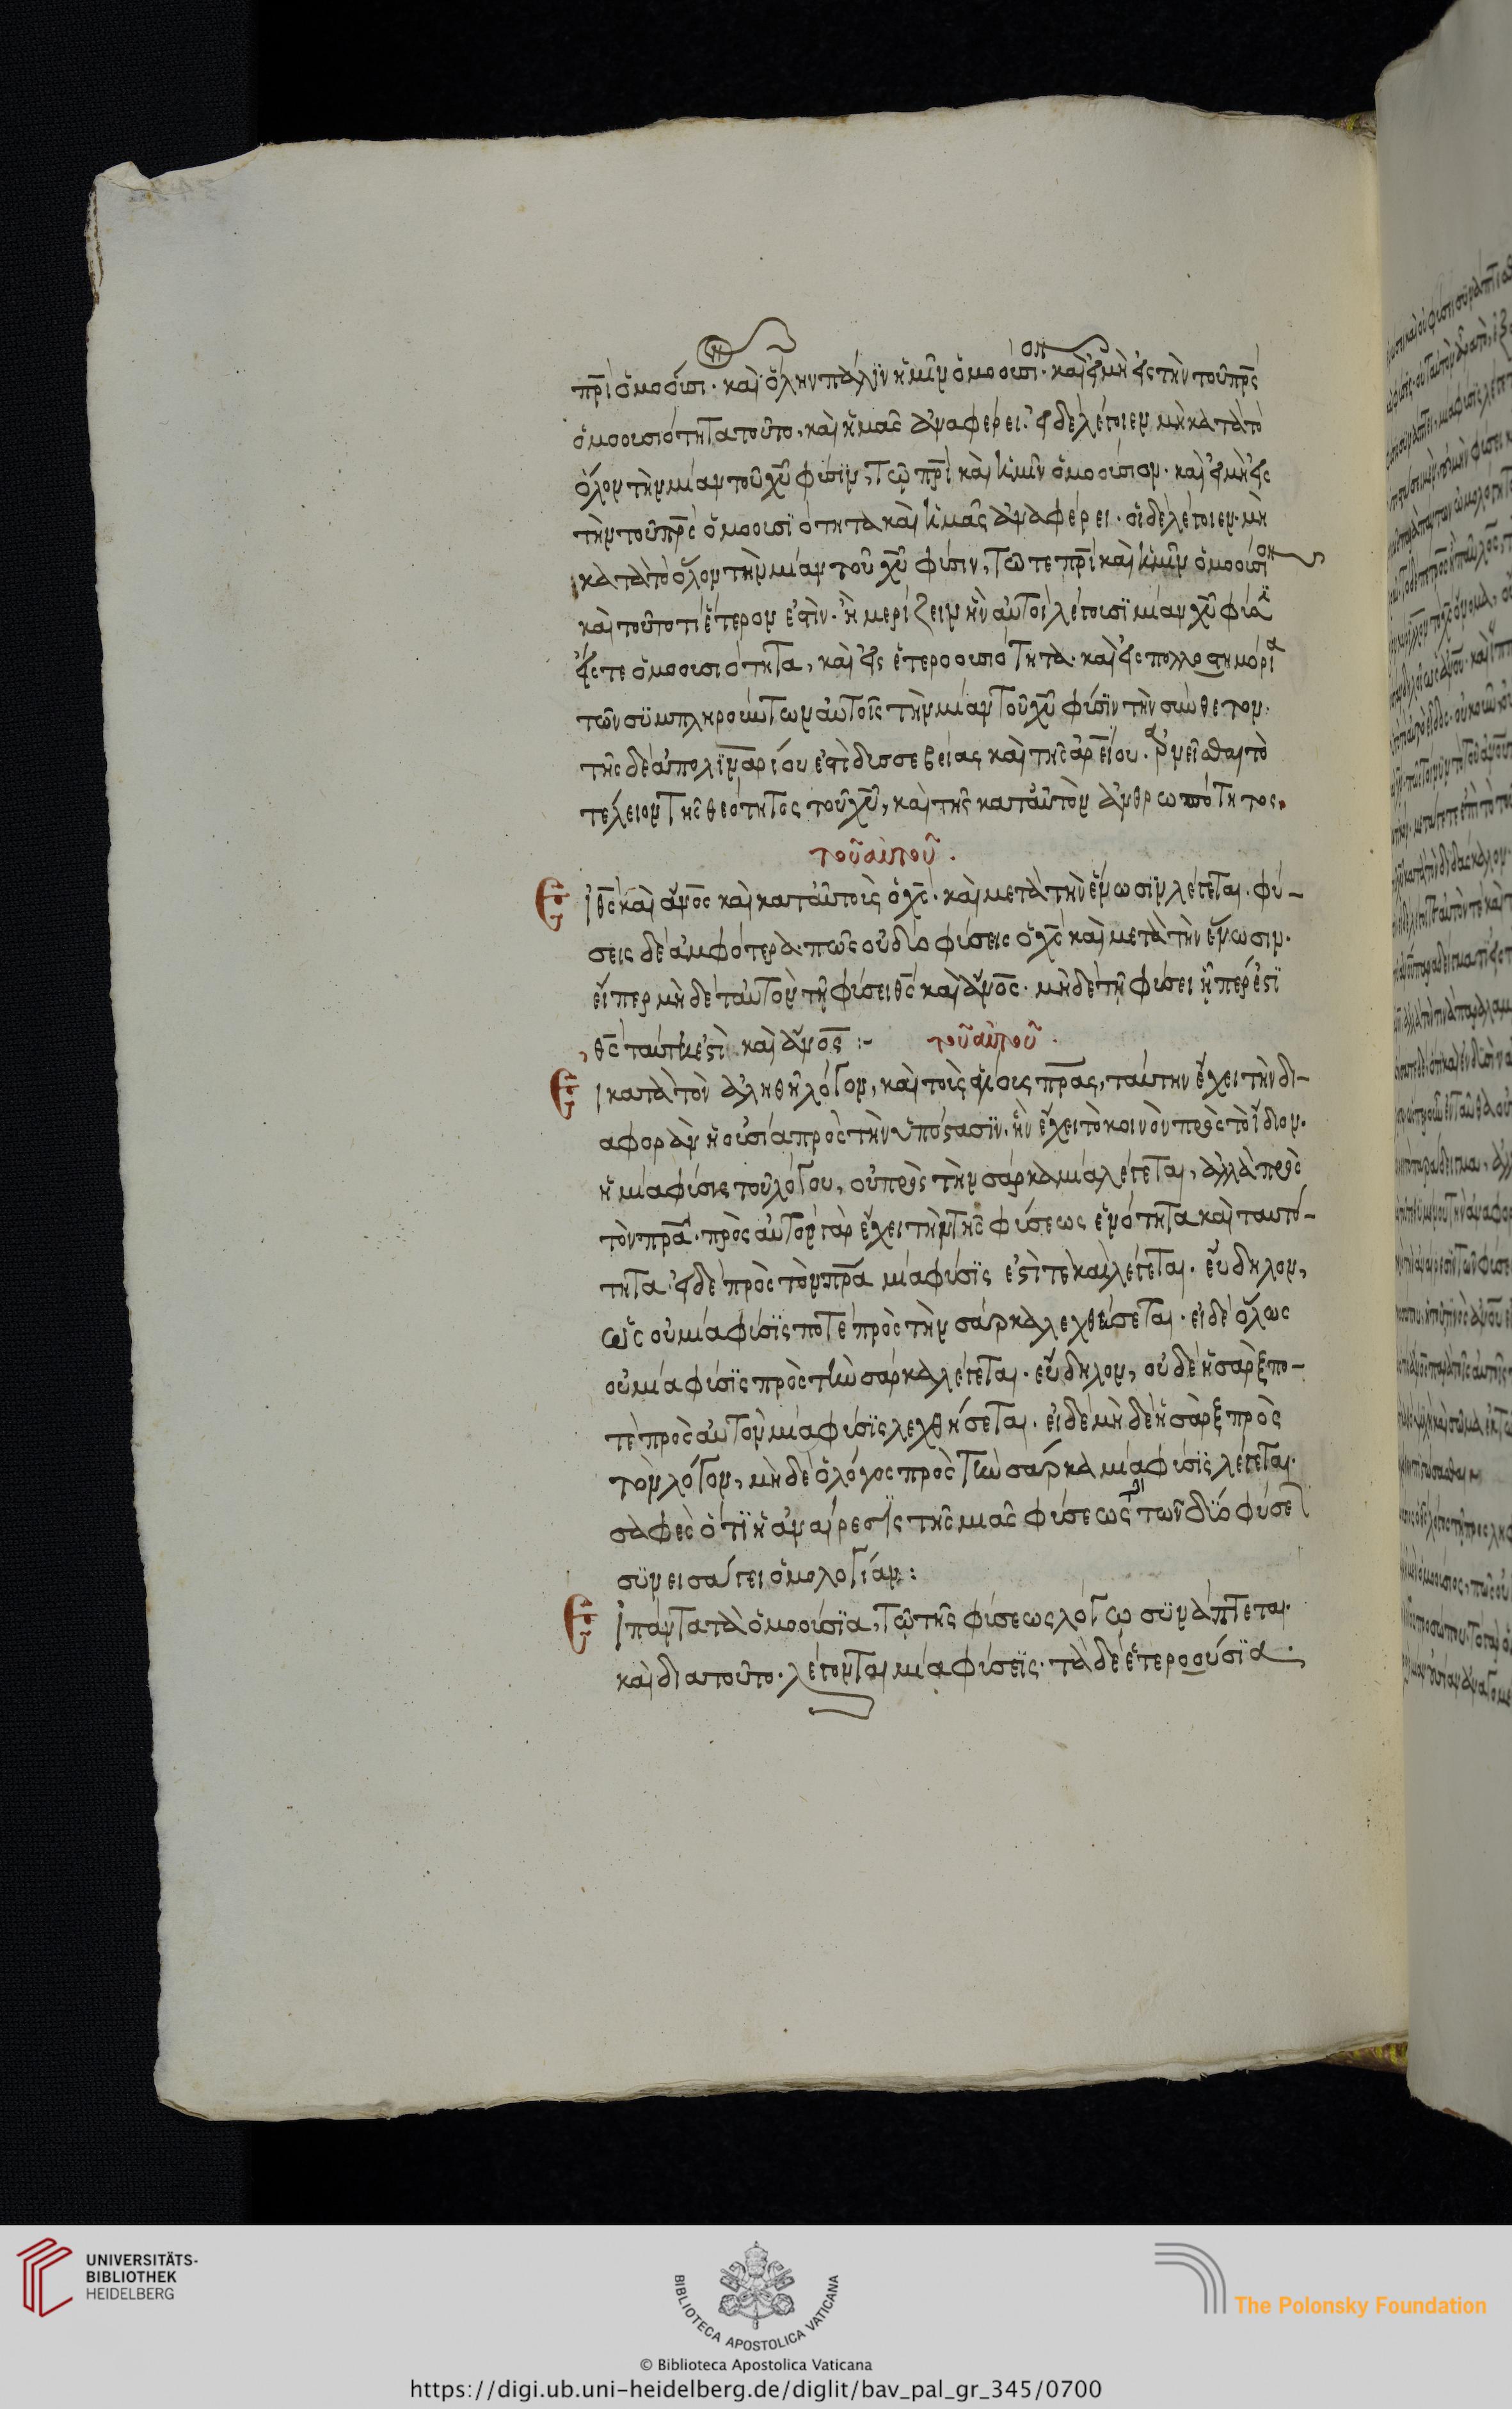 πρ̅ι ὁμοούσιον· καὶ ὅλην πάλιν ἡμῖν ὁμοούσιον· καὶ εἰ μὴ εἰς τὴν τοῦ πρ̅ς
ὁμοουσιότητα τοῦτο, καὶ ἡμᾶς ἀναφέρει· εἰ δὲ λέγοιεν μὴ κατὰ τὸ
ὅλον τὴν μίαν τοῦ χυ̅ φύσιν, τῷ πρ̅ι καὶ ἡμῖν ὁμοούσιον· καὶ εἰ μὴ εἰς
τὴν τοῦ πρ̅ς ὁμοουσιότητα καὶ ἡμᾶς ἀναφέρει· εἰ δὲ λέγοιεν· μὴ
κατὰ τὸ ὅλον τὴν μίαν τοῦ χυ̅ φύσιν, τῶ τε πρ̅ι καὶ ἡμῖν ὁμοούσιον
καὶ τοῦτο τί ἕτερον ἐστὶν· ἢ μερίζειν ἣν αὐτοὶ λέγουσι μίαν χυ̅ φύσιν
εἴς τε ὁμοουσιότητα, καὶ εἰς ἑτεροουσιότητα· καὶ εἰς πολλοστημόρια
τῶν συμπληρούντων αὐτοῖς τὴν μίαν τοῦ χυ̅ φύσιν τὴν σύνθετον·
τῆς δὲ ἀπολιναρίου ἐστὶ δυσσεβείας καὶ τῆς ἀρείου· ἀρνεῖσθαι τὸ
τέλειον τῆς θεότητος τοῦ χυ̅, καὶ τῆς κατ' αὐτὸν ἀνθρωπότητος.
τοῦ αὐτοῦ·
Εἰ θς̅ καὶ ἄνος̅ καὶ κατ' αὐτοὺς ὁ χς̅· καὶ μετὰ τὴν ἕνωσιν λέγεται· φύ-
σεις δὲ ἀμφότερα· πῶς οὐ δύο φύσεις ὁ χς̅ καὶ μετὰ τὴν ἕνωσιν·
εἴπερ μὴ δὲ ταυτὸν τῇ φύσει θς̅ καὶ ἄνος̅· μὴ δὲ τῇ φύσει ᾗπερ ἐστὶ
θς̅ ταύτῃ ἐστὶ καὶ ἄνος̅ :- τοῦ αὐτοῦ·
Εἰ κατὰ τὸν ἀληθῆ λόγον, καὶ τοὺς ἁγίους πρ̅ας, ταύτην ἔχει τὴν δι-
αφορὰν ἡ οὐσία πρὸς τὴν ὑπόστασιν· ἣν ἔχει τὸ κοινὸν πρὸς τὸ ἴδιον·
ἡ μία φύσις τοῦ λόγου, οὐ πρὸς τὴν σάρκα μία λέγεται, ἀλλὰ πρὸς
τὸν πρ̅α· πρὸς αὐτὸν γὰρ ἔχει τὴν τῆς φύσεως ἑνότητα καὶ ταυτό-
τητα· εἰ δὲ πρὸς τὸν πρ̅α μία φύσις ἐστί τε καὶ λέγεται· εὔδηλον,
ὡς οὐ μία φύσις ποτὲ πρὸς τὴν σάρκα λεχθήσεται· εἰ δὲ ὅλως
οὐ μία φύσις πρὸς τὴν σάρκα λέγεται· εὔδηλον, οὐδὲ ἡ σὰρξ πο-
τὲ πρὸς αὐτὸν μία φύσις λεχθήσεται· εἰ δὲ μὴ δὲ ἡ σὰρξ πρὸς
τὸν λόγον, μὴ δὲ ὁ λόγος πρὸς τὴν σάρκα μία φύσις λέγεται·
σαφὲς ὅτι ἡ ἀναίρεσις τῆς μιᾶς φύσεως τὴν τῶν δύο φύσεων
συνεισάγει ὁμολογίαν :
Εἰ πάντα τὰ ὁμοούσια, τῷ τῆς φύσεως λόγῳ συνάπτεται·
καὶ διατοῦτο· λέγονται μία φύσεις· τὰ δὲ ἑτεροούσια·
UNIVERSITÄTS-
BIBLIOTHEK
HEIDELBERG
BIBLIOTECA APOSTOLICA VATICANA
The Polonsky Foundation
© Biblioteca Apostolica Vaticana
https://digi.ub.uni-heidelberg.de/diglit/bav_pal_gr_345/0700